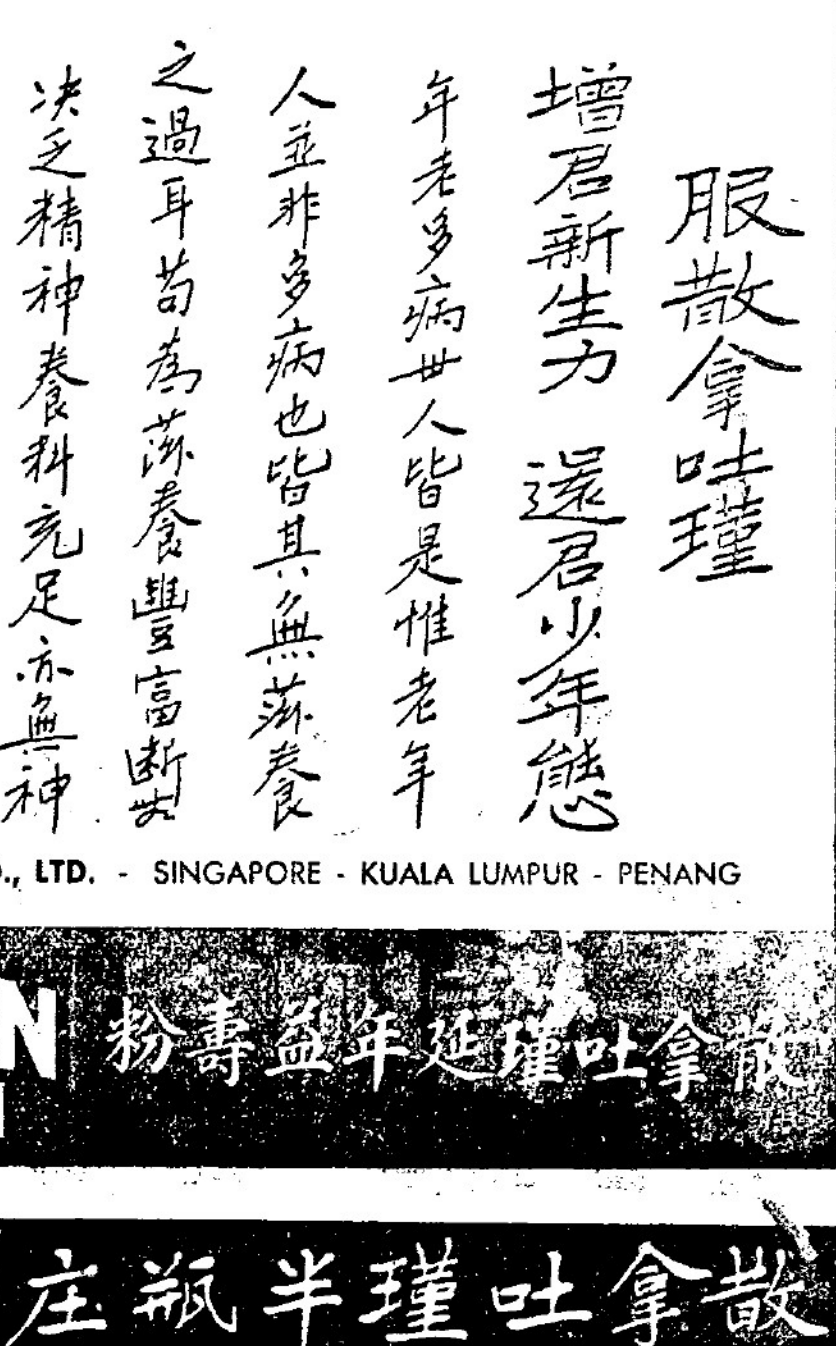 服散拿吐瑾
增君新生力 還君少年態
年老多病世人皆是惟老年
人並非多病也皆其無滋養
之過耳苟為滋養豐富斷
決乏精神養料充足亦無神
., LTD. - SINGAPORE - KUALA LUMPUR - PENANG
N
散拿吐瑾延年益壽粉
散拿吐瑾半瓶庄